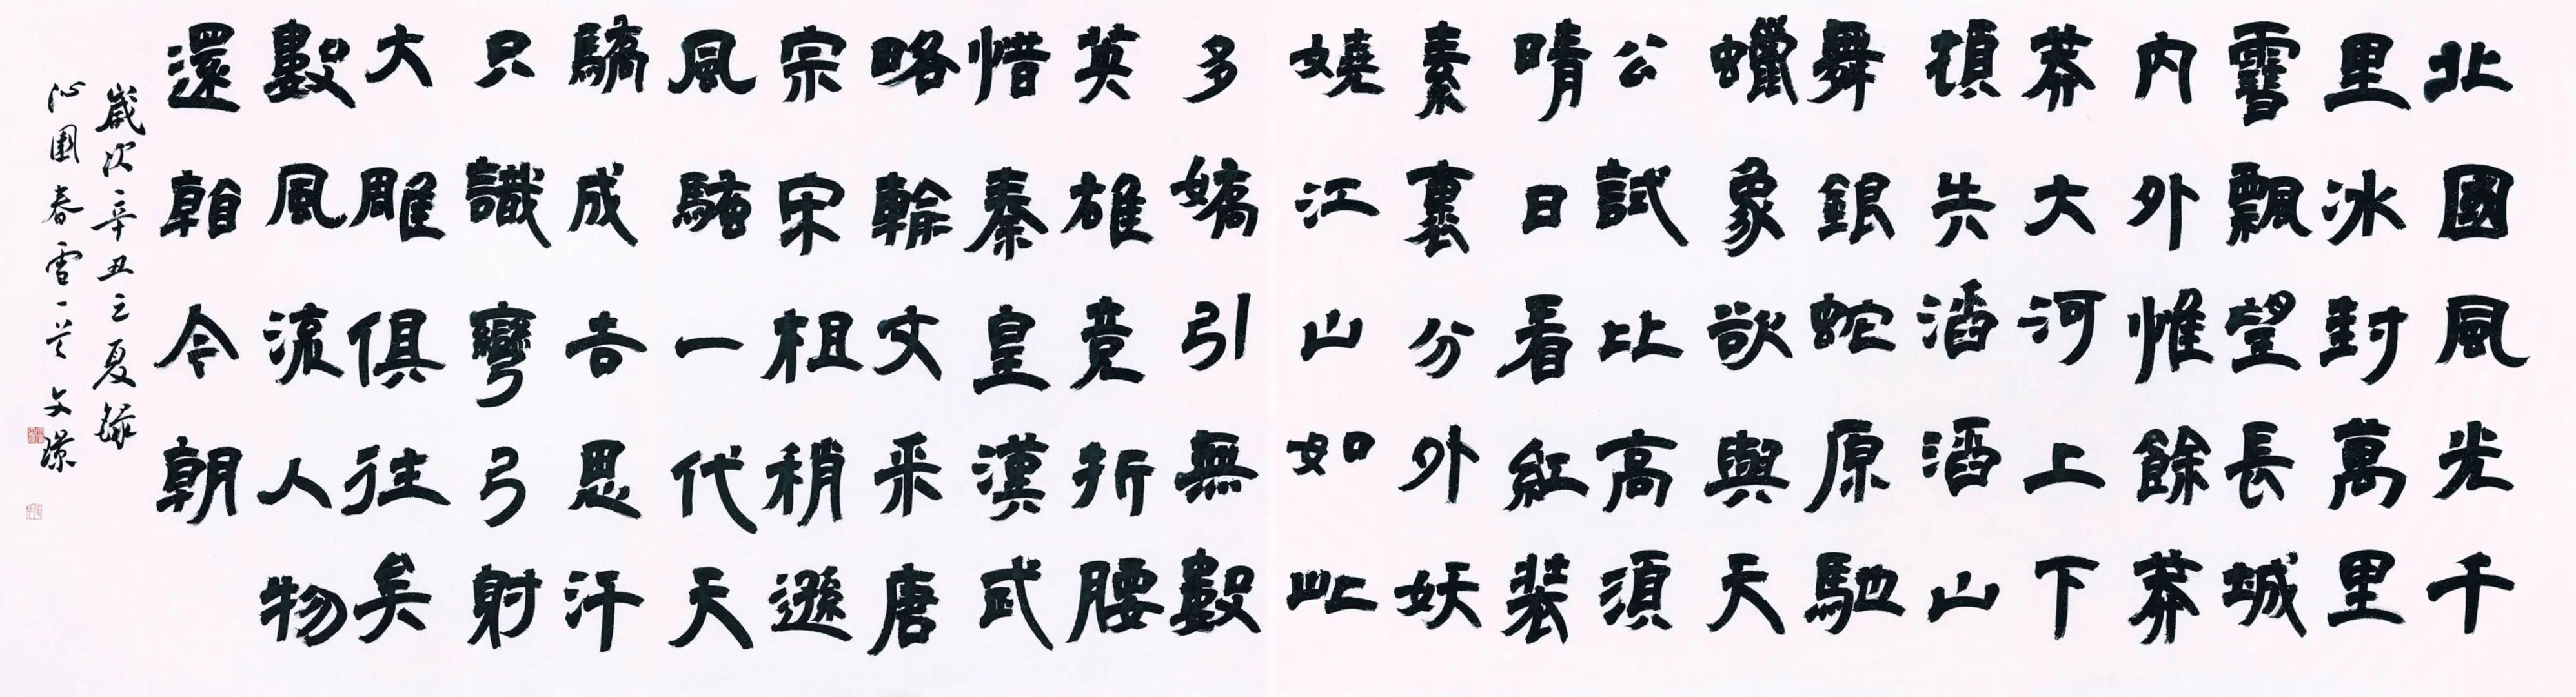 北國風光千
里冰封萬里
雪飄望長城
内外惟餘莽
莽大河上下
頓失滔滔山
舞銀蛇原馳
蠟象欲與天
公試比高須
晴日看紅裝
素裹分外妖
嬈江山如此
多嬌引無數
英雄竟折腰
惜秦皇漢武
略輸文采唐
宗宋祖稍遜
風騷一代天
驕成吉思汗
只識彎弓射
大雕俱往矣
數風流人物
還看今朝
歲次辛丑之夏錄
沁園春雪一首文